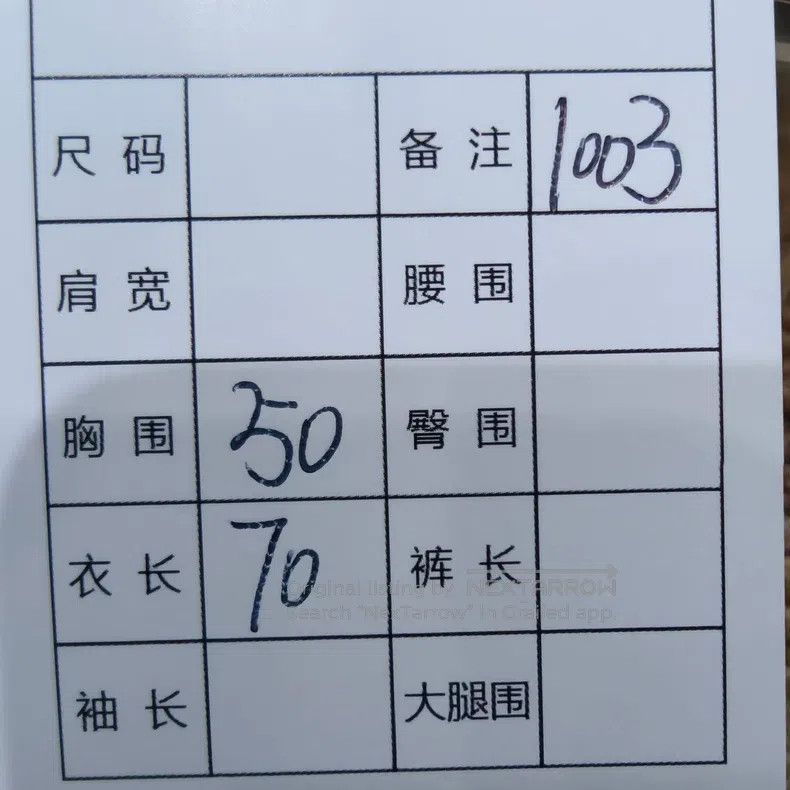 尺码 备注 1003
肩宽 腰围
胸围 50 臀围
衣长 70 裤长
Original listing by NEXTARROW
Search "NexTarrow" in Grailed app
袖长 大腿围